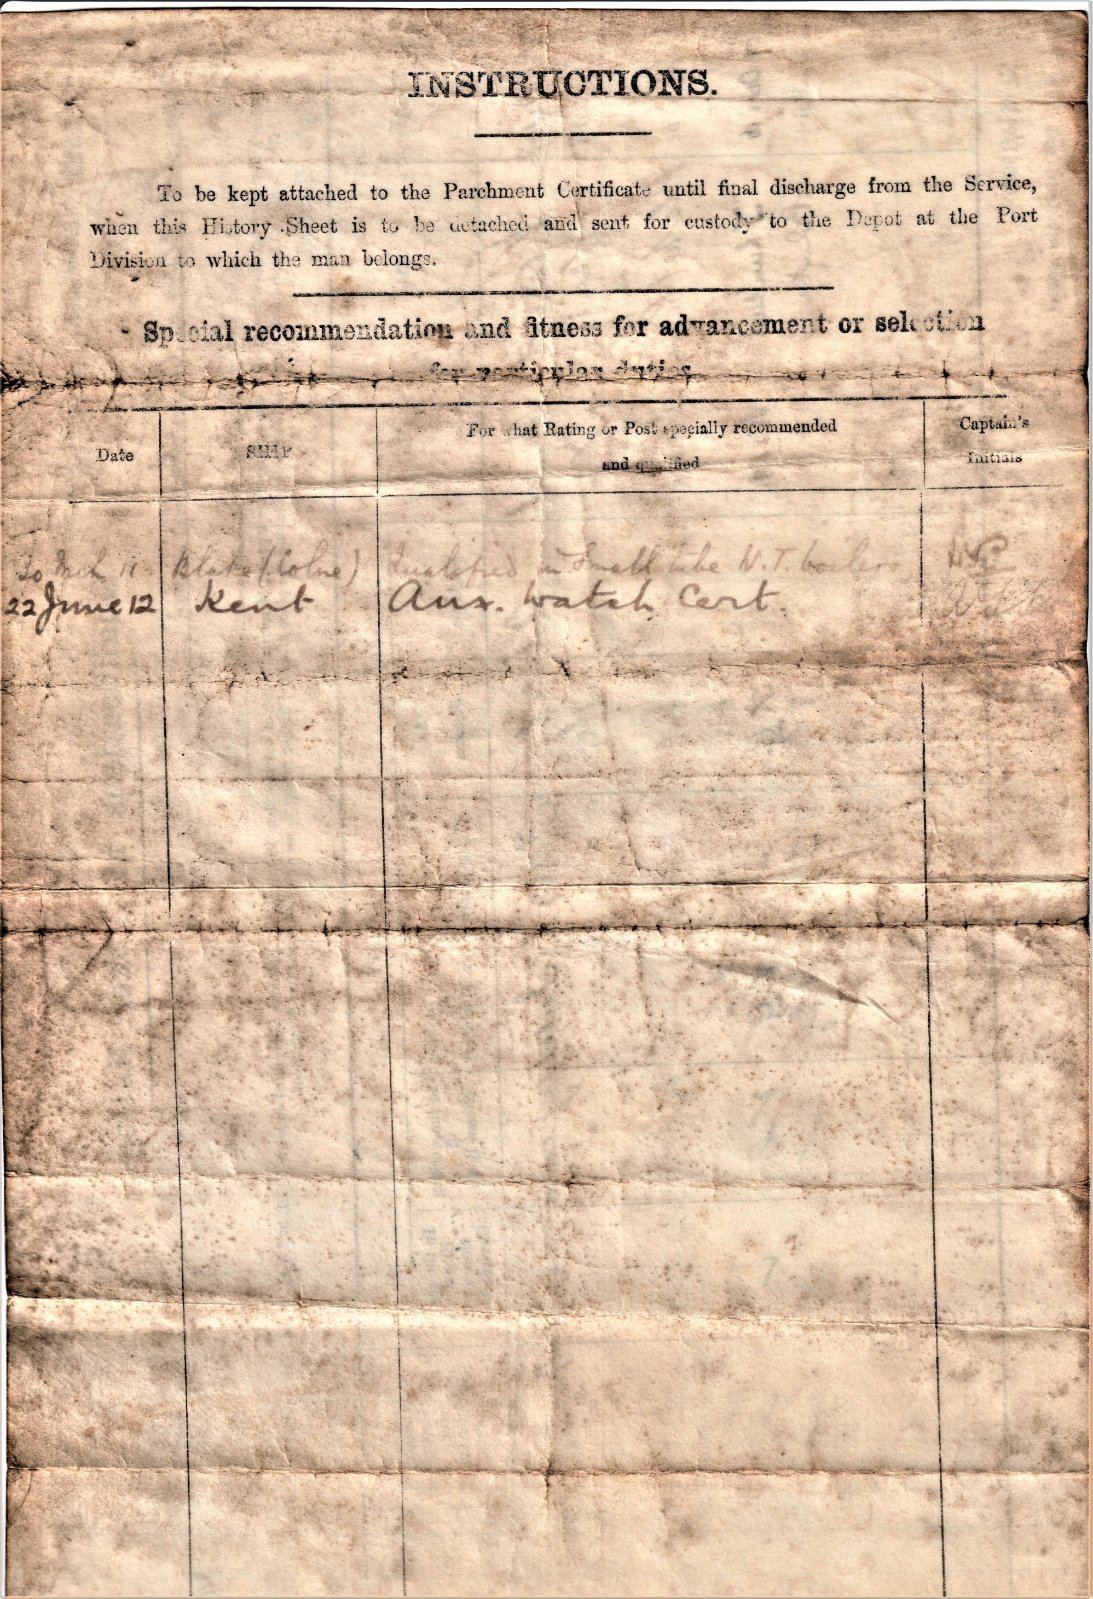 INSTRUCTIONS.
To be kept attached to the Parchment Certificate until final discharge from the Service,
when this History Sheet is to be detached and sent for custody to the Depot at the Port
Division to which the man belongs.
Special recommendation and fitness for advancement or selection
for particular duties
Date
SHIP
For what Rating or Post specially recommended
and qualified
Captain's
Initials
Blake (Colne) Qualified in Small tube W.T. boilers
22 June 12 Kent Aux. Watch Cert.